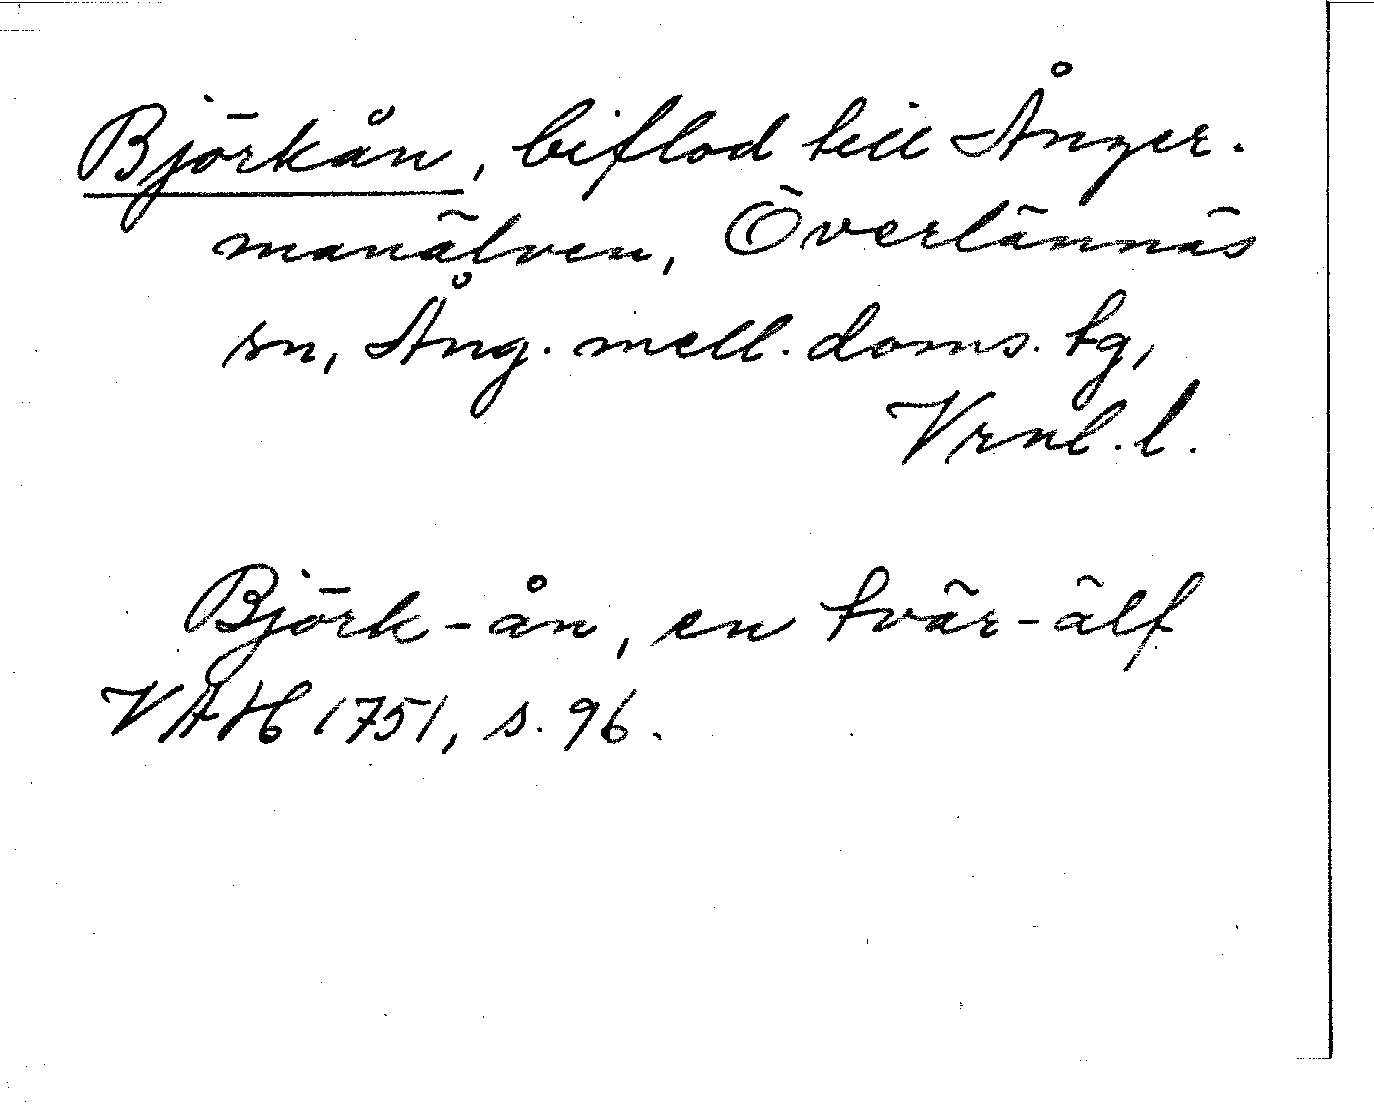 Björkån, biflod till Ånger-
manälven, Överlännäs
sn, Ång. mell. doms. tg,
Vrnl. l.
Björk-ån, en tvär-älf
VAH 1751, s. 96.